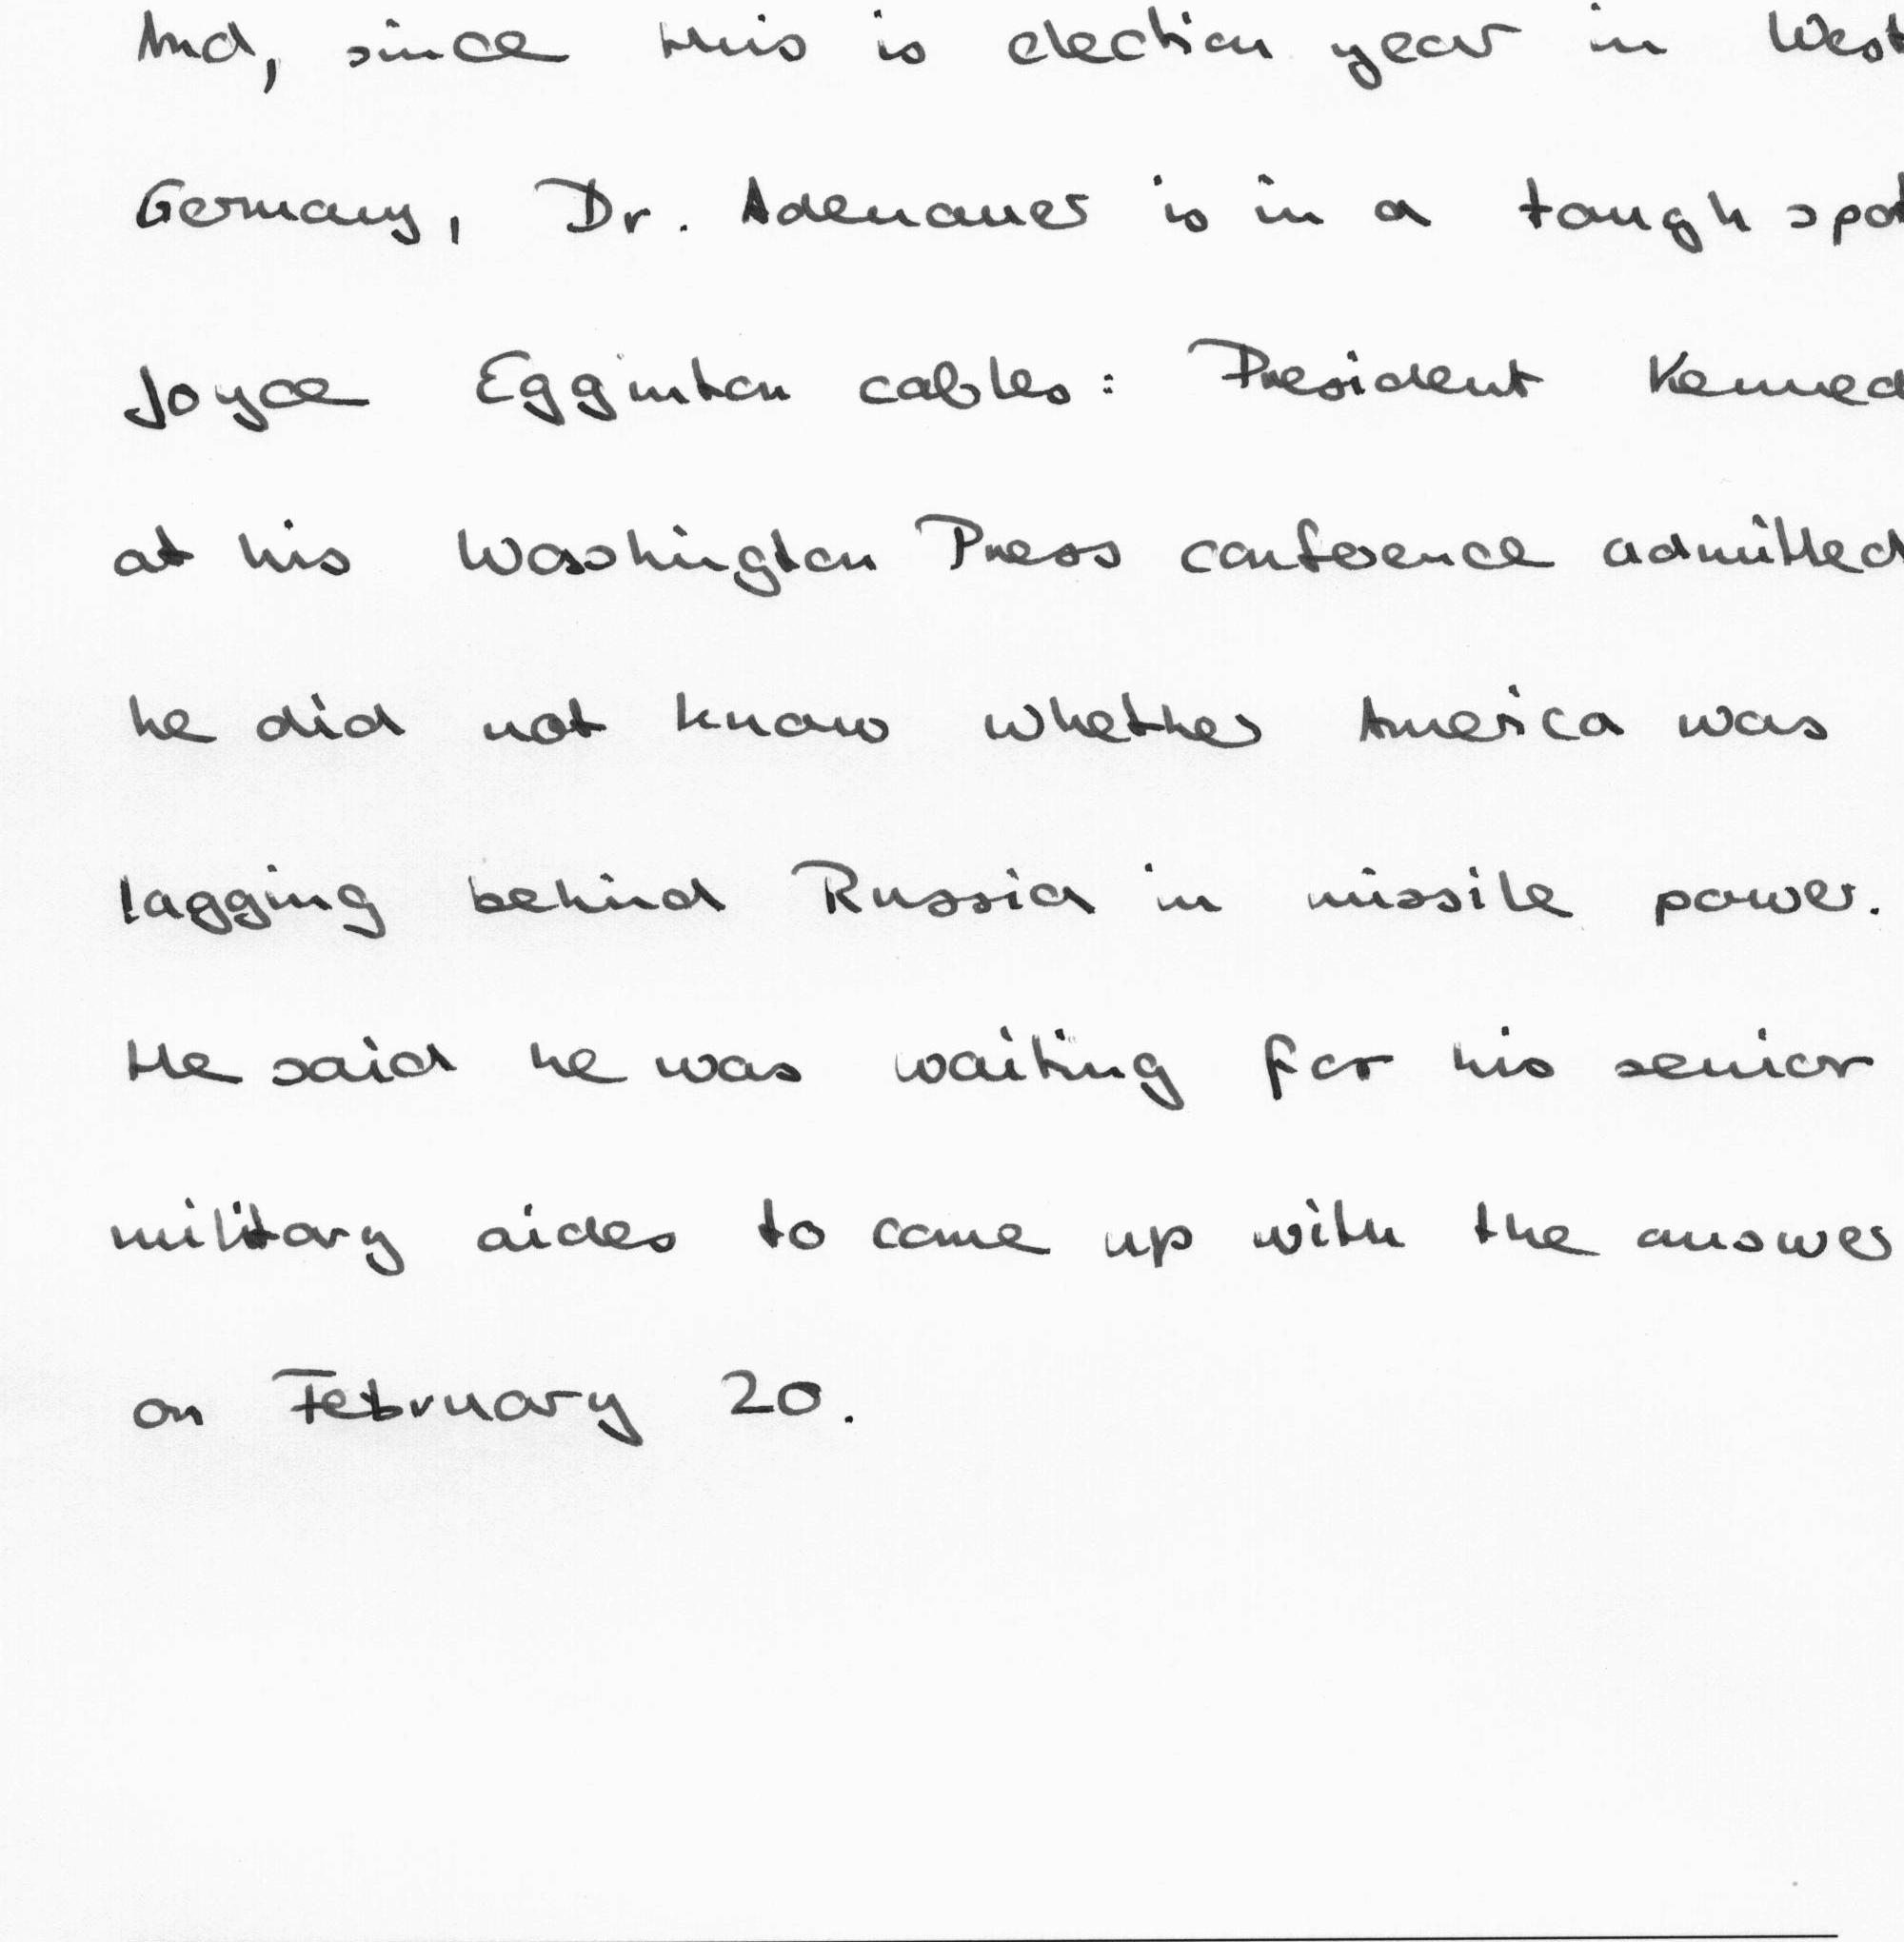 And, since this is election year in West
Germany, Dr. Adenauer is in a tough spot
Joyce Egginton cables: President Kenned
at his Washington Press conference admitted
he did not know whether America was
lagging behind Russia in missile power.
He said he was waiting for his senior
military aides to come up with the answer
on February 20.